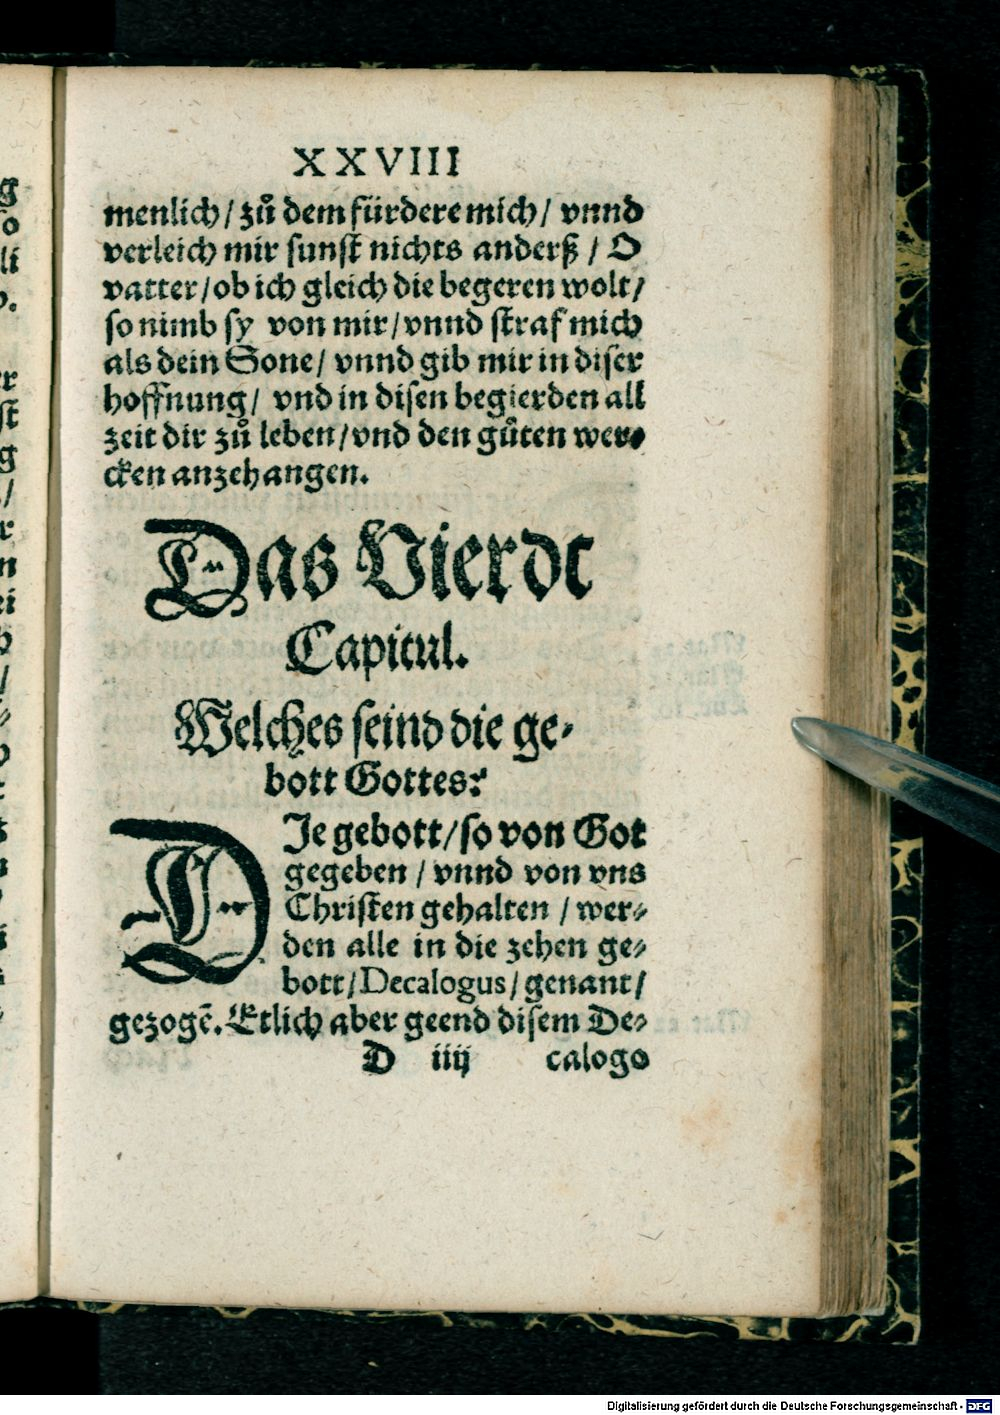 XXVIII
menlich / zů dem fürdere mich / vnnd
verleich mir sunst nichts anderß / O
vatter / ob ich gleich die begeren wolt /
so nimb sy von mir / vnnd straf mich
als dein Sone / vnnd gib mir in diser
hoffnung / vnd in disen begierden all
zeit dir zů leben / vnd den gůten wer⸗
cken anzehangen.
Das Vierdt
Capitul.
Welches seind die ge⸗
bott Gottes?
DJe gebott / so von Got
gegeben / vnnd von vns
Christen gehalten / wer⸗
den alle in die zehen ge⸗
bott / Decalogus / genant /
gezogē. Etlich aber geend disem De⸗
D iiij calogo
Digitalisierung gefördert durch die Deutsche Forschungsgemeinschaft - DFG